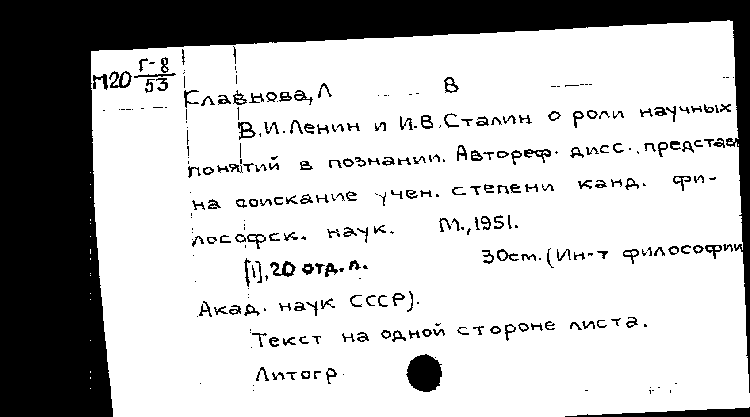 М20 Г-8/53
Славнова, Л В
В.И.Ленин и И.В.Сталин о роли научных
понятий в познании. Автореф. дисс., представл
на соискание учен. степени канд. фи-
лософск. наук. М., 1951.
[1], 20 отд.л. 30см. (Ин-т философии
Акад. наук СССР).
Текст на одной стороне листа.
Литогр.